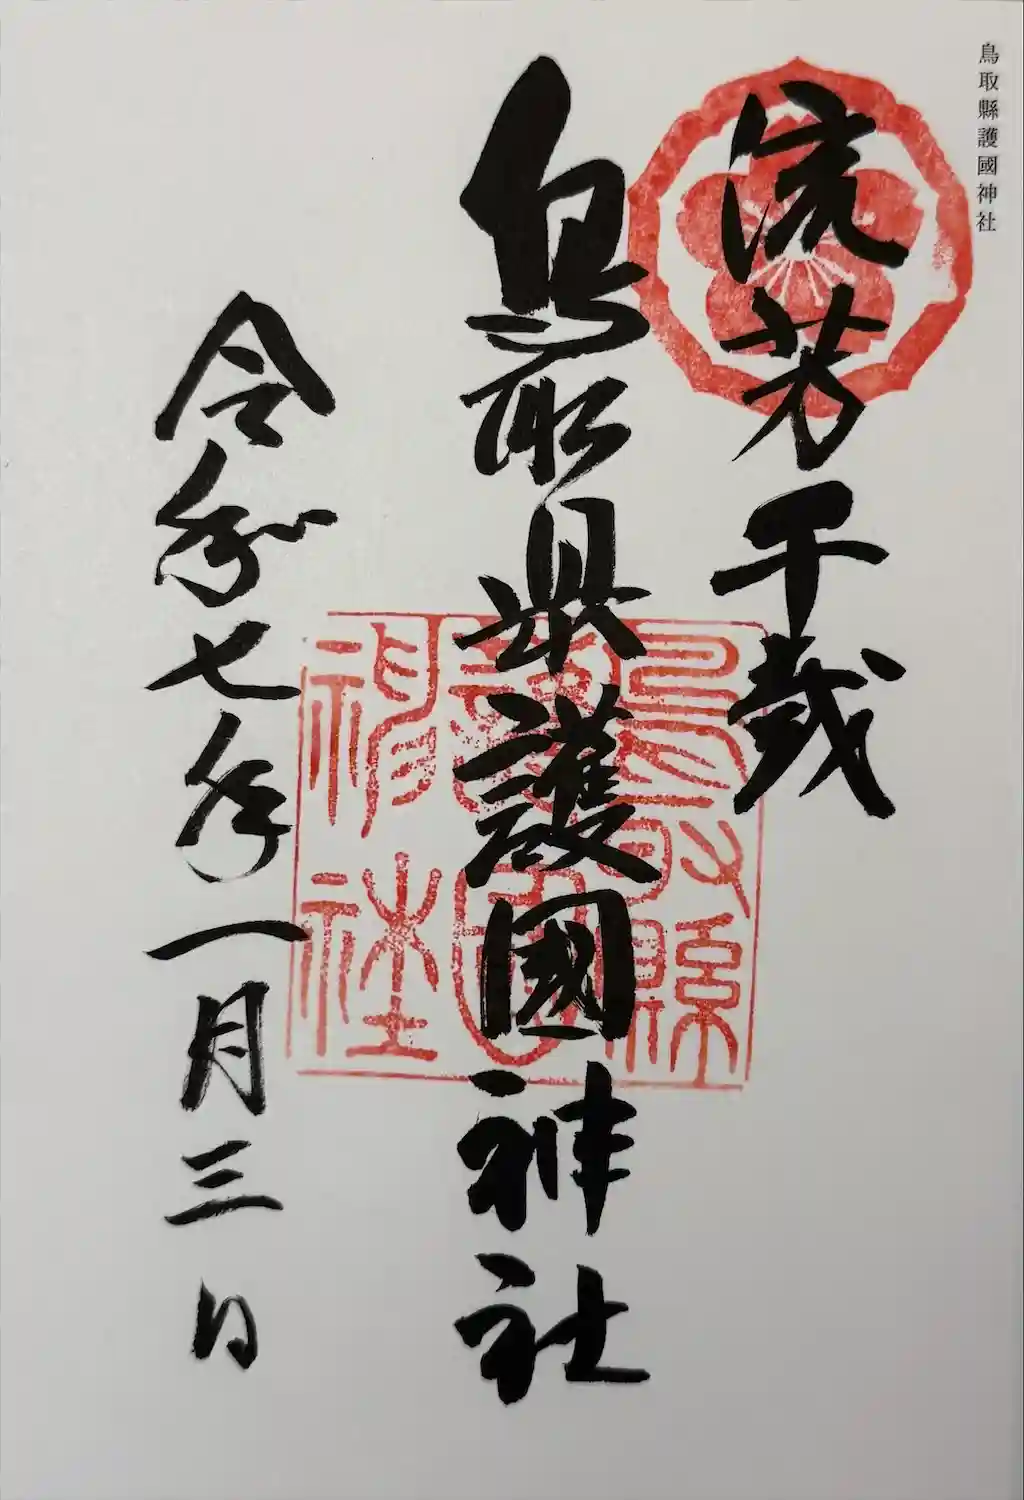 鳥取縣護國神社
流芳千歳
鳥取県護國神社
令和七年一月三日
鳥取縣
護國
神社